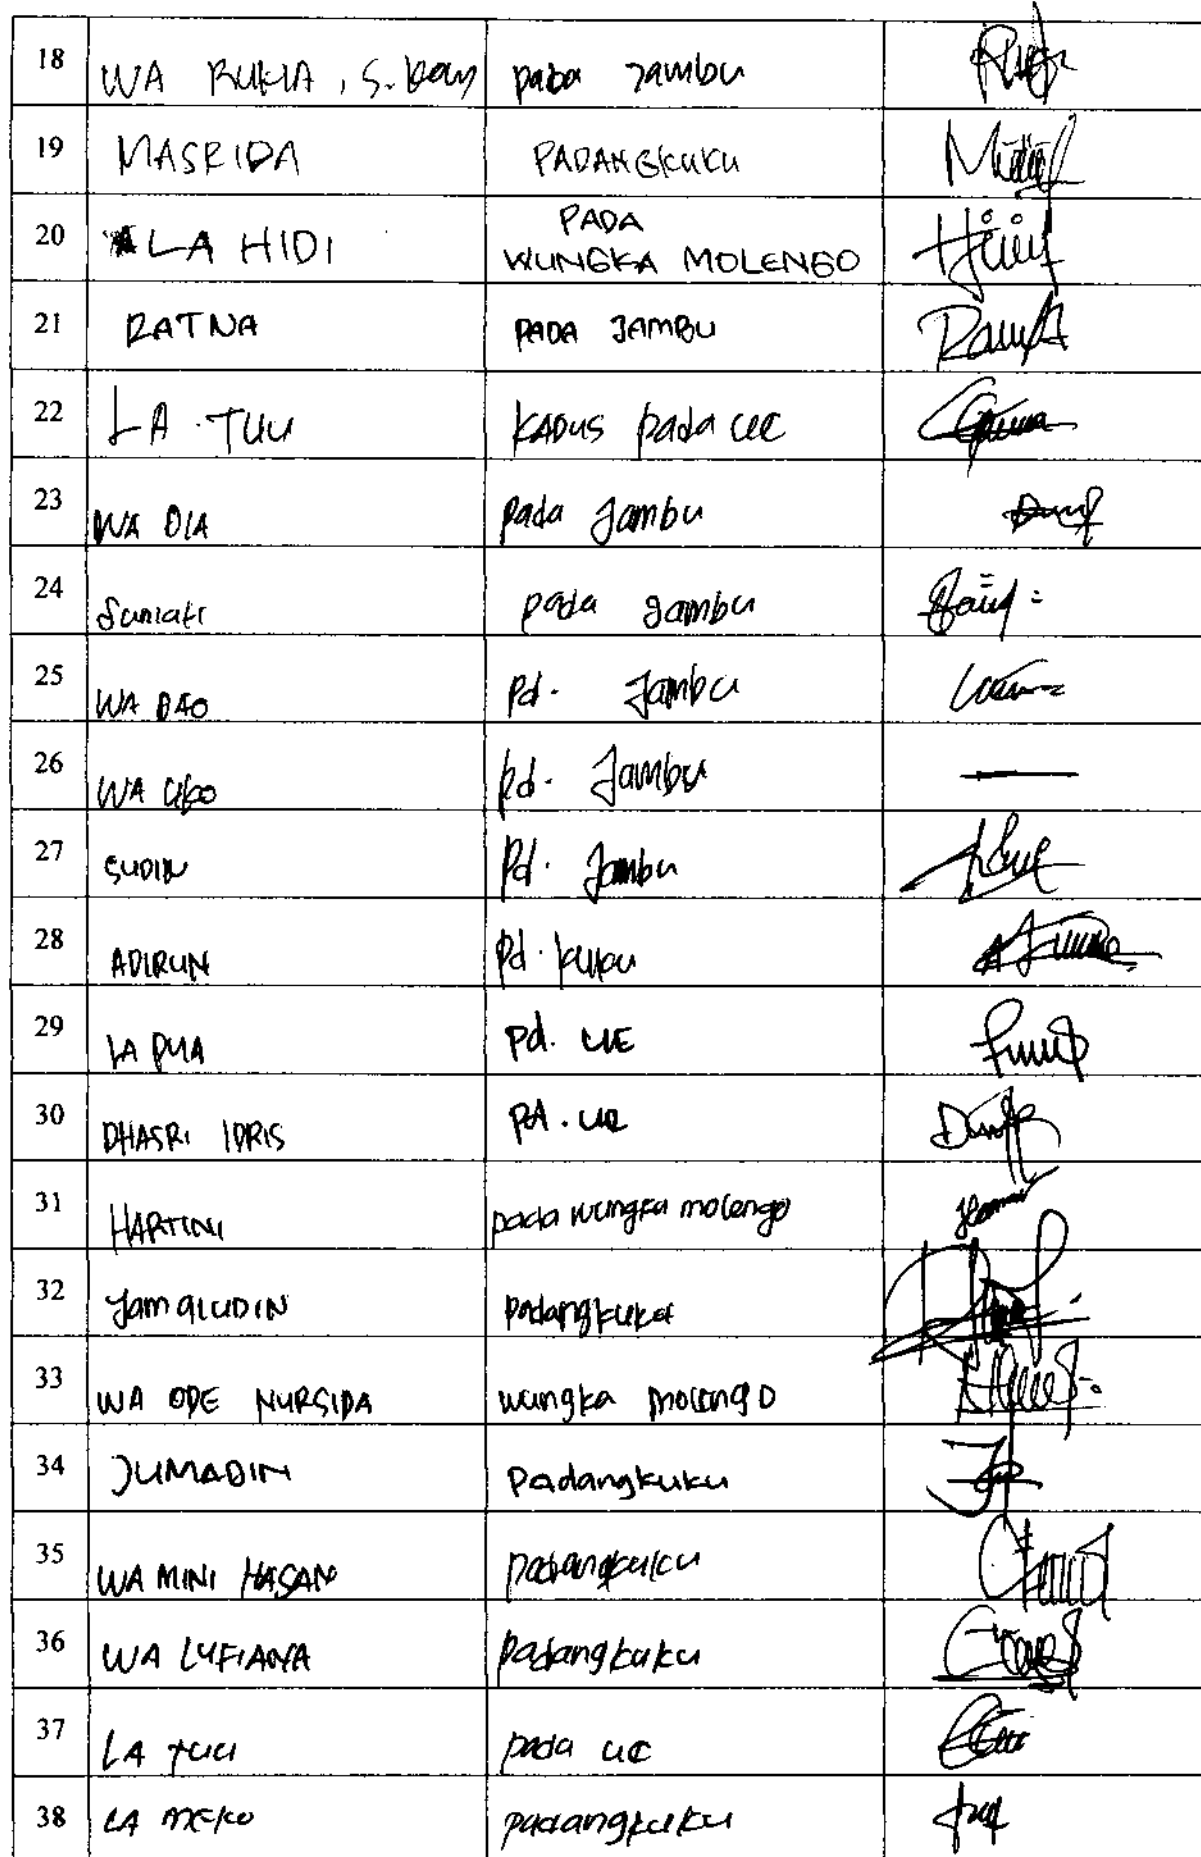 18 WA RUKIA, S. pada Jambu
19 MASRIDA PADANGKUKU
20 LA HIDI PADA
WUNGKA MOLENGO
21 RATNA PADA JAMBU
22 LA TUU KADUS pada UE
23 WA DIA pada Jambu
24 Suniati pada Jambu
25 WA BAO pd. Jambu
26 WA pd. Jambu
27 SUDIN Pd. Jambu
28 ADIRUN pd. kuku
29 LA PUA Pd. UE
30 DHASRI IDRIS pd. ue
31 HARTINI pada wungka molengo
32 Jamaludin padangkuku
33 WA ODE NURSIDA wungka molengo
34 JUMADIN Padangkuku
35 WA MINI HASAN padangkuku
36 WA LUFIANA padangkuku
37 LA TUU pada ue
38 LA MEKO padangkuku